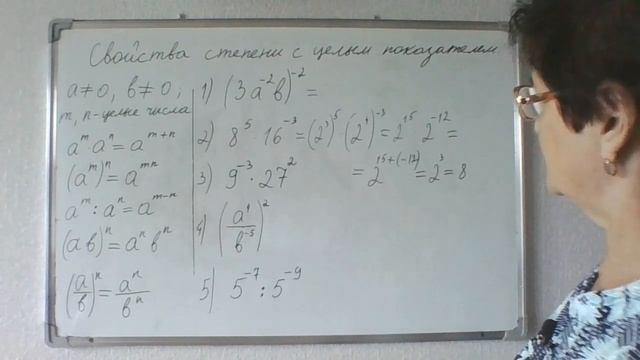 Свойства степени с целым показателем
a≠0, b≠0;
m, n-целые числа
aᵐ·aⁿ=aᵐ⁺ⁿ
(aᵐ)ⁿ=aᵐⁿ
aᵐ:aⁿ=aᵐ⁻ⁿ
(ab)ⁿ=aⁿbⁿ
(a/b)ⁿ=aⁿ/bⁿ
1) (3a⁻²b)⁻²=
2) 8⁵·16⁻³=(2³)⁵·(2⁴)⁻³=2¹⁵·2⁻¹²=
=2¹⁵⁺⁽⁻¹²⁾=2³=8
3) 9⁻³·27²
4) (a⁴/b⁻⁵)²
5) 5⁻⁷:5⁻⁹